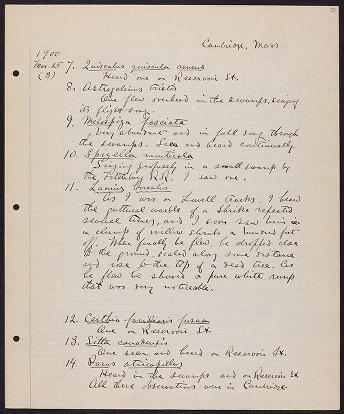 Cambridge, Mass.
1900
Mar. 25
(3)
7. Quiscalus quiscula aeneus
Heard one on Reservoir St.
8. Astragalinus tristis
One flew overhead in the swamps, singing
its flight song.
9. Melospiza fasciata
Very abundant and in full song through
the swamps. Seen and heard continually.
10. Spizella monticola
Singing profusely in a small swamp by
the Fitchburg R.R. I saw one.
11. Lanius borealis
As I was on Lowell tracks, I heard
the guttural warble of a Shrike repeated
several times, and I soon saw him in
a clump of willow shrubs a hundred feet
off. When finally he flew, he dropped close
to the ground, scaled along some distance
and rose to the top of a dead tree. As
he flew he showed a pure white rump
that was very noticeable.
12. Certhia familiaris fusca
One on Reservoir St.
13. Sitta canadensis
One seen and heard on Reservoir St.
14. Parus atricapillus
Heard in the swamps and on Reservoir St.
All these observations were in Cambridge